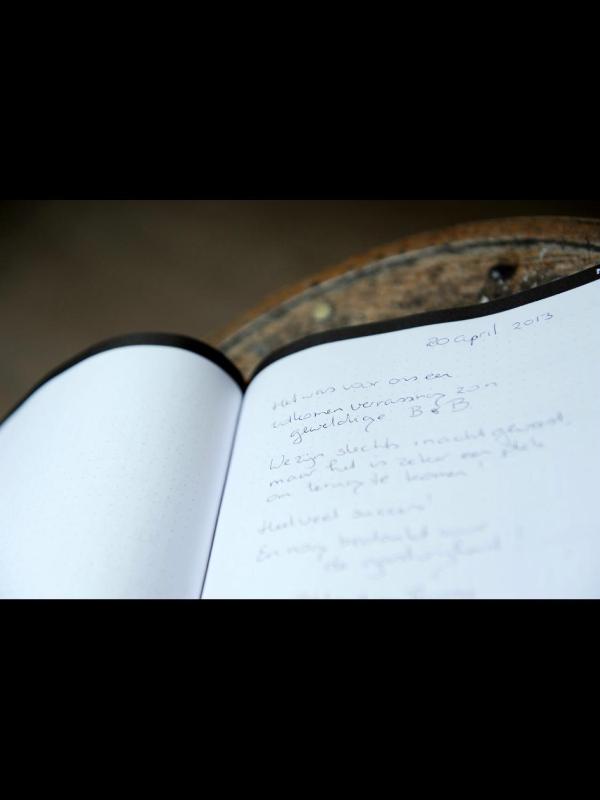 20 april 2013
Het was voor ons een
volkomen verrassing zo'n
geweldige B&B
We zijn slechts 1 nacht geweest,
maar het is zeker een plek
om terug te komen!
Heel veel succes!
En nog bedankt voor
de